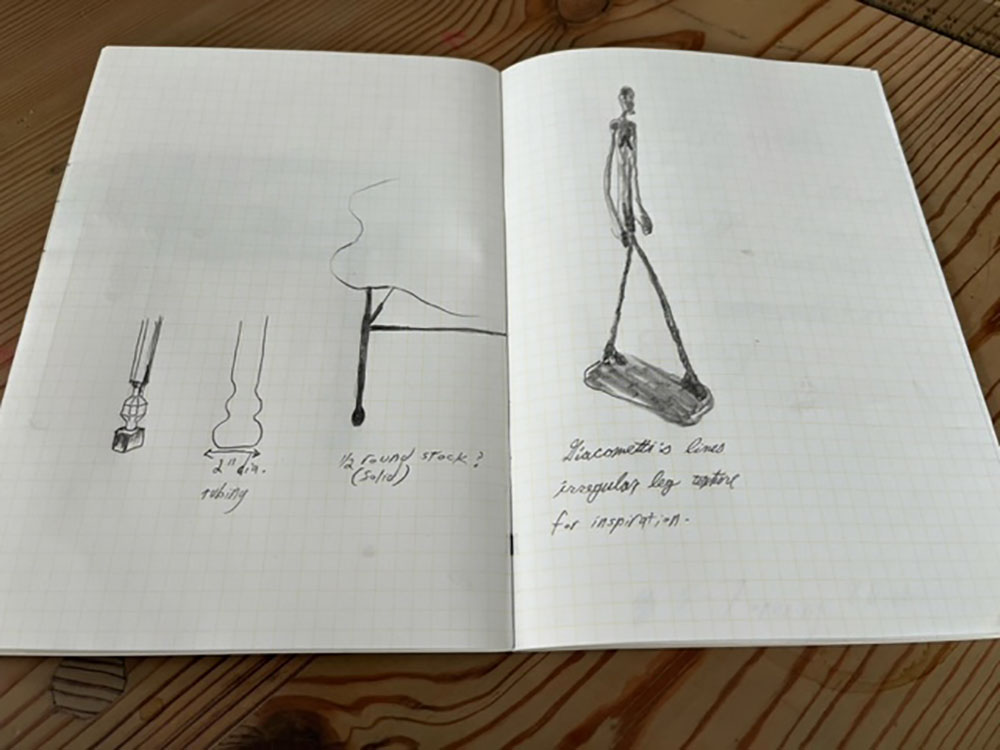 2" dia.
tubing
1/2 round stock?
(solid)
Giacometti's lines
irregular leg texture
for inspiration.